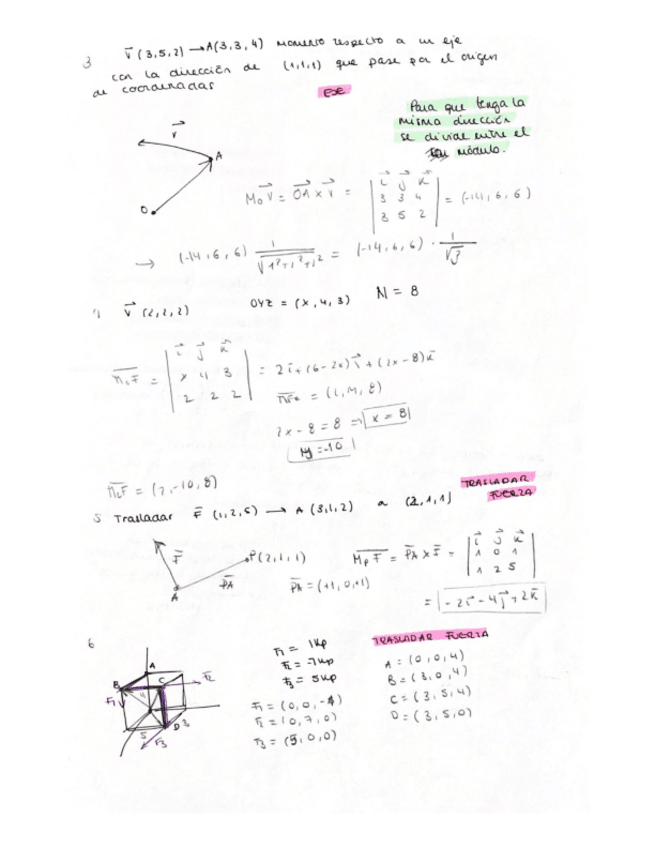 3 v⃗ (3,5,2) → A(3,3,4) momento respecto a un eje
con la dirección de (1,1,1) que pase por el origen
de coordenadas
EJE
Para que tenga la
misma dirección
se divide entre el
módulo.
v⃗
A
O
M₀v⃗ = OA⃗ x v⃗ = | i⃗ j⃗ k⃗ | = (-14, 6, 6)
3 3 4
3 5 2
→ (-14, 6, 6) 1/√1²+1²+1² = (-14, 6, 6) · 1/√3
v⃗ (2,2,2) OYZ = (x, 4, 3) N = 8
= | i⃗ j⃗ k⃗ | = 2i⃗ + (6-2x)j⃗ + (2x-8)k⃗
x 4 3
2 2 2
= (L, M, 8)
2x - 8 = 8 ⇒ x = 8
M = -10
M₀F = (2, -10, 8)
TRASLADAR
FUERZA
5 Trasladar F⃗ (1,2,5) → A (3,1,2) a (2,1,1)
F⃗
P(2,1,1)
PA
A
PA = (+1, 0, +1)
MpF = PA x F = | i⃗ j⃗ k⃗ |
1 0 1
1 2 5
= -2i⃗ - 4j⃗ + 2k⃗
6
F₁ = 1kp
F₂ = 7kp
F₃ = 5kp
TRASLADAR FUERZA
A = (0,0,4)
B = (3,0,4)
C = (3,5,4)
D = (3,5,0)
F₂ = (0,7,0)
F₃ = (5,0,0)
A
B
C
F₂
F₁
4
D
3
5
F₃